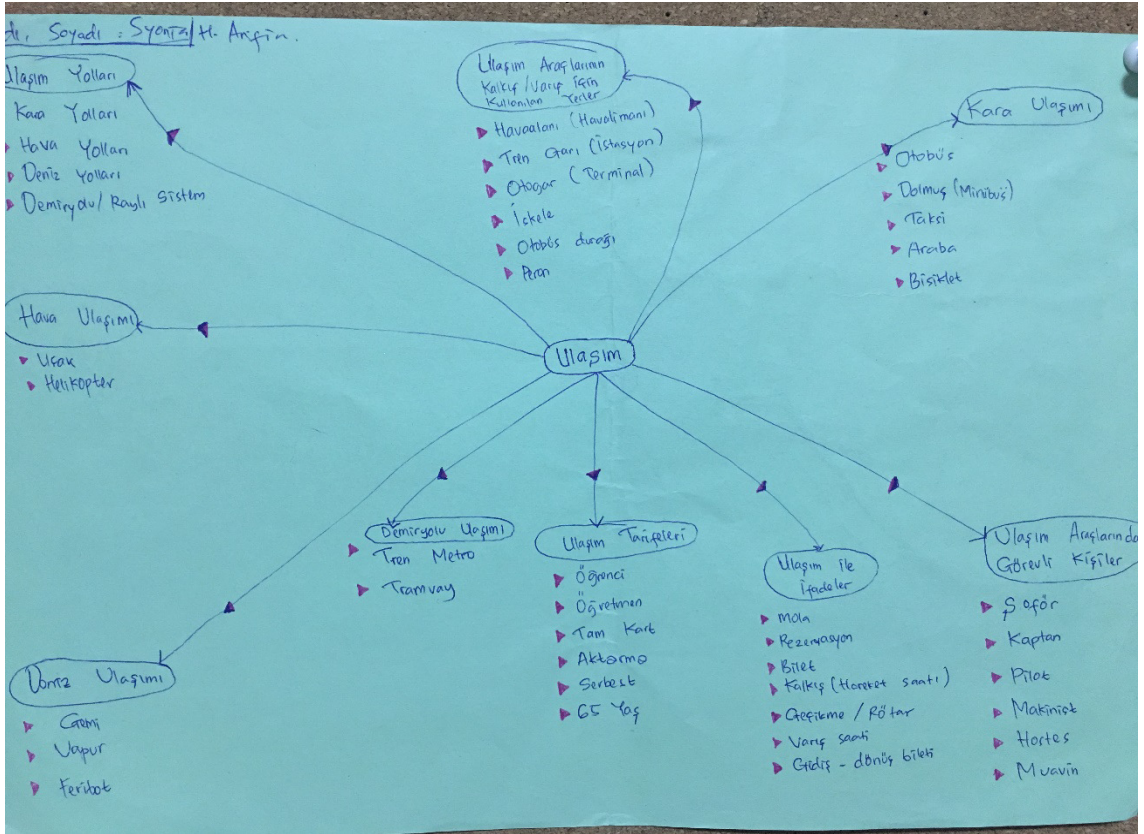 dı, Soyadı : Syonia/H. Angın.
Ulaşım Yolları
Kara Yolları
Hava Yolları
Deniz Yolları
Demiryolu/ Raylı Sistem
Ulaşım Araçlarının
Kalkış/Varış İçin
Kullanılan Yerler
Havaalanı (Havalimanı)
Tren Garı (İstasyon)
Otogar (Terminal)
İskele
Otobüs durağı
Peron
Kara Ulaşımı
Otobüs
Dolmuş (Minibüs)
Taksi
Araba
Bisiklet
Hava Ulaşımı
Uçak
Helikopter
Ulaşım
Demiryolu Ulaşımı
Tren Metro
Tramvay
Ulaşım Tarifeleri
Öğrenci
Öğretmen
Tam Kart
Aktarma
Serbest
65 Yaş
Ulaşım ile
İfadeler
Mola
Rezervasyon
Bilet
Kalkış (Hareket saati)
Geçikme / Rötar
Varış saati
Gidiş - dönüş bileti
Ulaşım Araçlarında
Görevli Kişiler
Şoför
Kaptan
Pilot
Makinist
Hostes
Muavin
Deniz Ulaşımı
Gemi
Vapur
Feribot